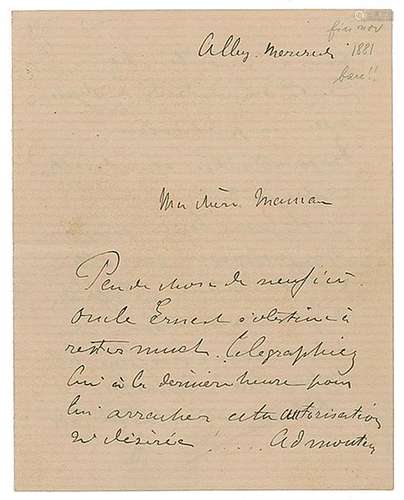 fin nov
1881
bac!!
Alby. Mercredi
Ma chère Maman
Peu de chose de neuf ici.
Oncle Ernest s'obstine à
rester muet. Télégraphiez
lui à la dernière heure pour
lui arracher cette autorisation
si désirée !.....